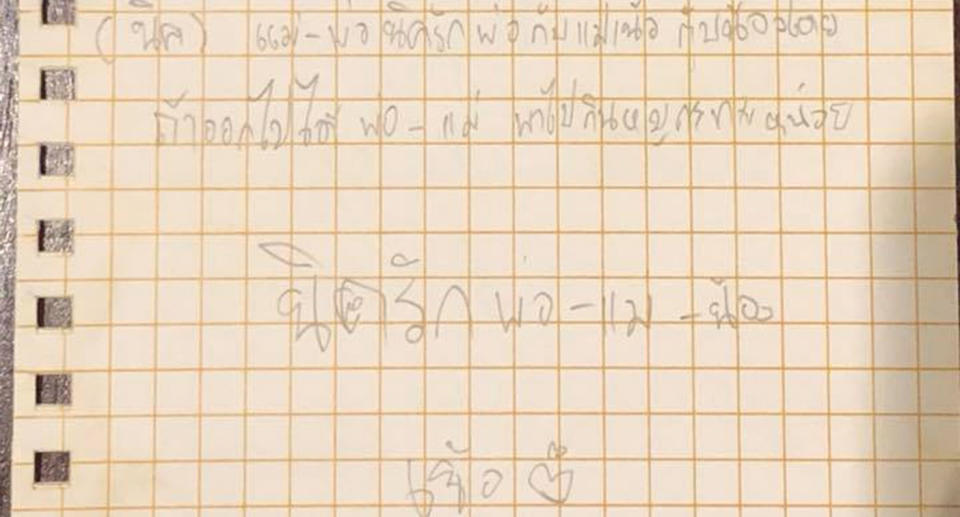 (นิค) แม่-พ่อ นิครักพ่อกับแม่เน้อ กับน้องด้วย
ถ้าออกไปได้ พ่อ-แม่ พาไปกินหมูกระทะหน่อย
นิครักพ่อ-แม่-น้อง
เน้อ